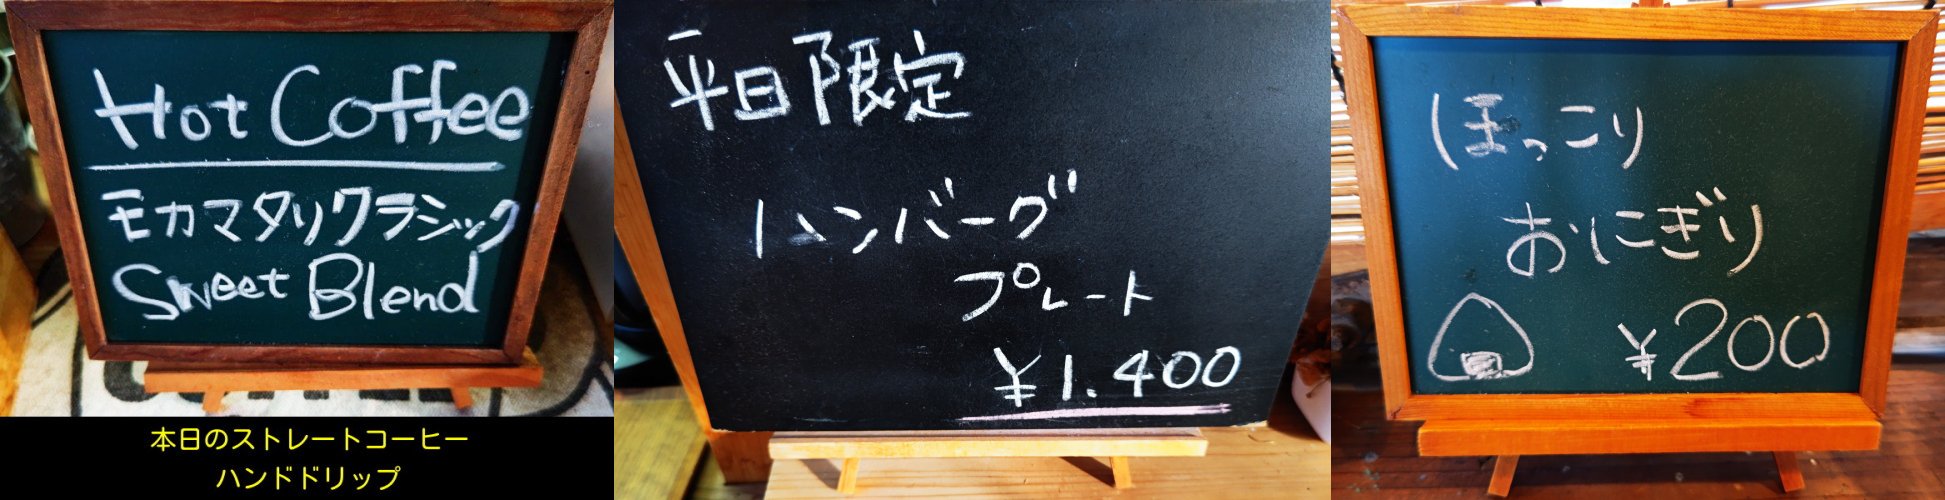 Hot Coffee
モカマタリクラシック
Sweet Blend
本日のストレートコーヒー
ハンドドリップ
平日限定
ハンバーグ
プレート
¥1.400
ほっこり
おにぎり
¥200